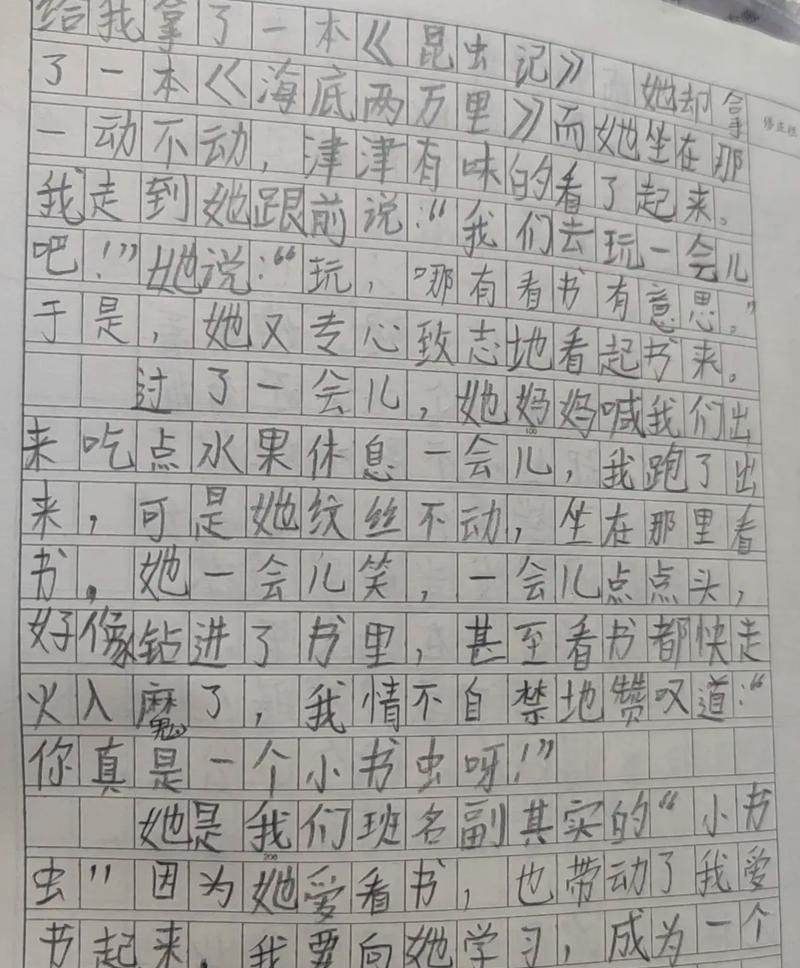 给我拿了一本《昆虫记》 她却拿
了一本《海底两万里》而她坐在那
一动不动，津津有味的看了起来。
我走到她跟前说：“我们去玩一会儿
吧！”她说：“玩，哪有看书有意思。”
于是，她又专心致志地看起书来。
过了一会儿，她妈妈喊我们出
100
来吃点水果休息一会儿，我跑了出
来，可是她纹丝不动，坐在那里看
书。她一会儿笑，一会儿点点头，
好像钻进了书里，甚至看书都快走
火入魔了，我情不自禁地赞叹道：“
你真是一个小书虫呀！”
她是我们班名副其实的“小书
200
虫”因为她爱看书，也带动了我爱
书起来，我要向她学习，成为一个
修正栏